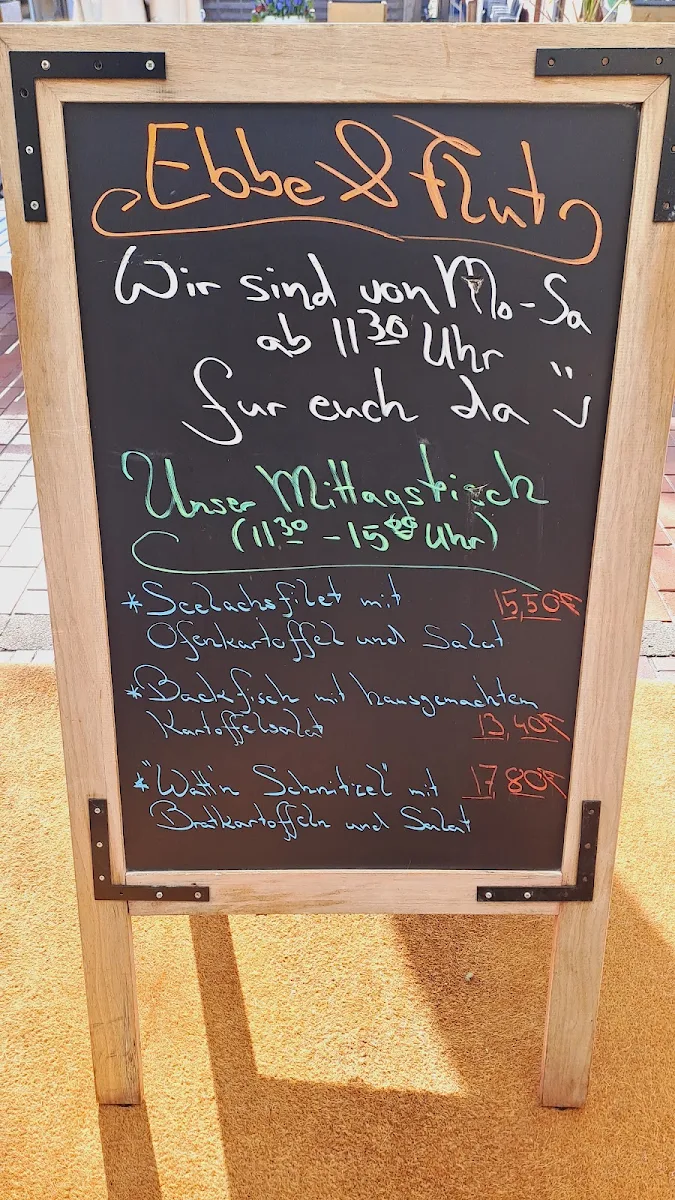 Ebbe & Flut
Wir sind von Mo-Sa
ab 11³⁰ Uhr
für euch da
Unser Mittagstisch
(11³⁰ - 15⁰⁰ Uhr)
*Seelachsfilet mit 15,50€
Ofenkartoffel und Salat
*Backfisch mit hausgemachtem
Kartoffelsalat 13,40€
*"Watt'n Schnitzel" mit 17,80€
Bratkartoffeln und Salat